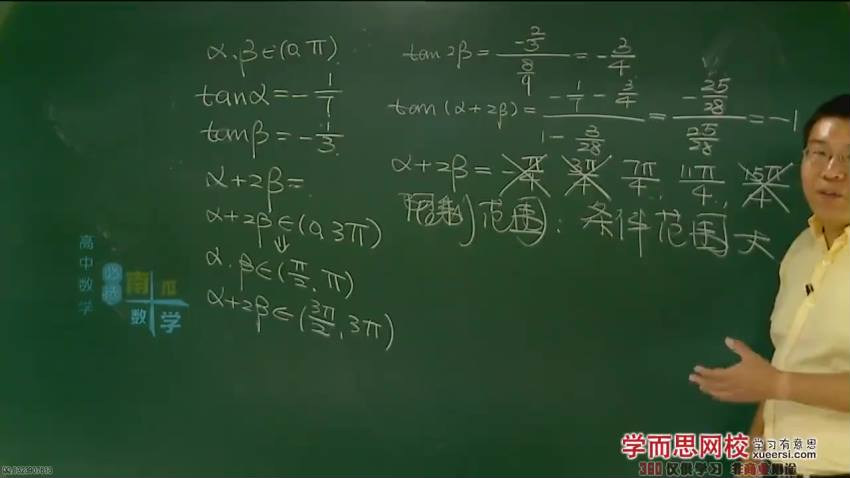 α.β∈(0,π)
tanα=-1/7
tanβ=-1/3
α+2β=
α+2β∈(0,3π)
⇓
α.β∈(π/2,π)
α+2β∈(3π/2,3π)
tan2β=(-2/3)/(8/9)=-3/4
tan(α+2β)=(-1/7-3/4)/(1-3/28)=(-25/28)/(25/28)=-1
α+2β=-π/4 3π/4 7π/4, 11π/4, 15π/4
范围:条件范围大
高中数学
必修
南瓜
数学
学而思网校
学习有意思
xueersi.com
360仅供学习 非商业用途